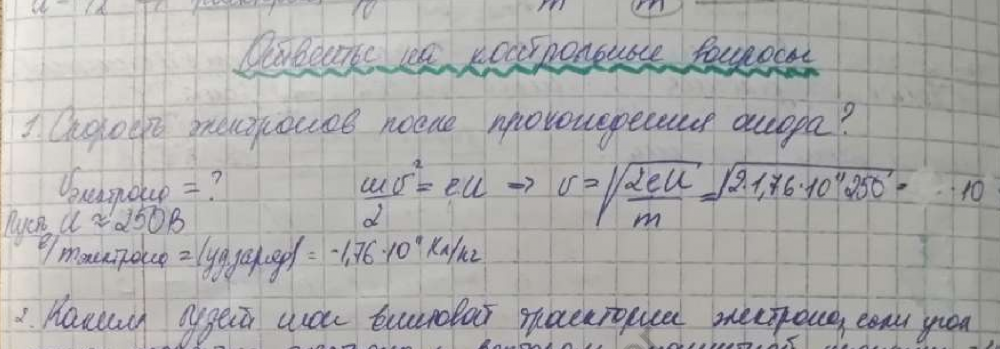 Ответы на контрольные вопросы
1. Скорость электронов после прохождения анода?
υэлектрона = ? mυ²/2 = eU => υ = √(2eU/m) = √(2·1,76·10¹¹·250 = 10
Пусть U ≈ 250В
e/mэлектрона = |уд.заряд| = -1,76·10¹¹ Кл/кг
2. Каким будет шаг винтовой траектории электрона, если угол